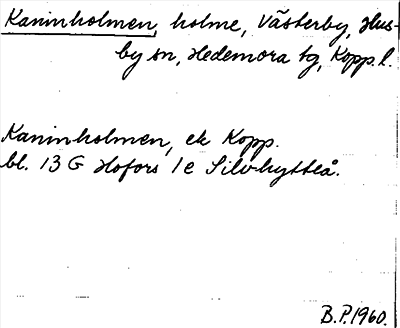 Kaninholmen, holme, Västerby, Hus-
by sn, Hedemora tg, Kopp. l.
Kaninholmen, ek Kopp.
bl. 13 G Hofors 1e Silvhytteå.
B.P. 1960.